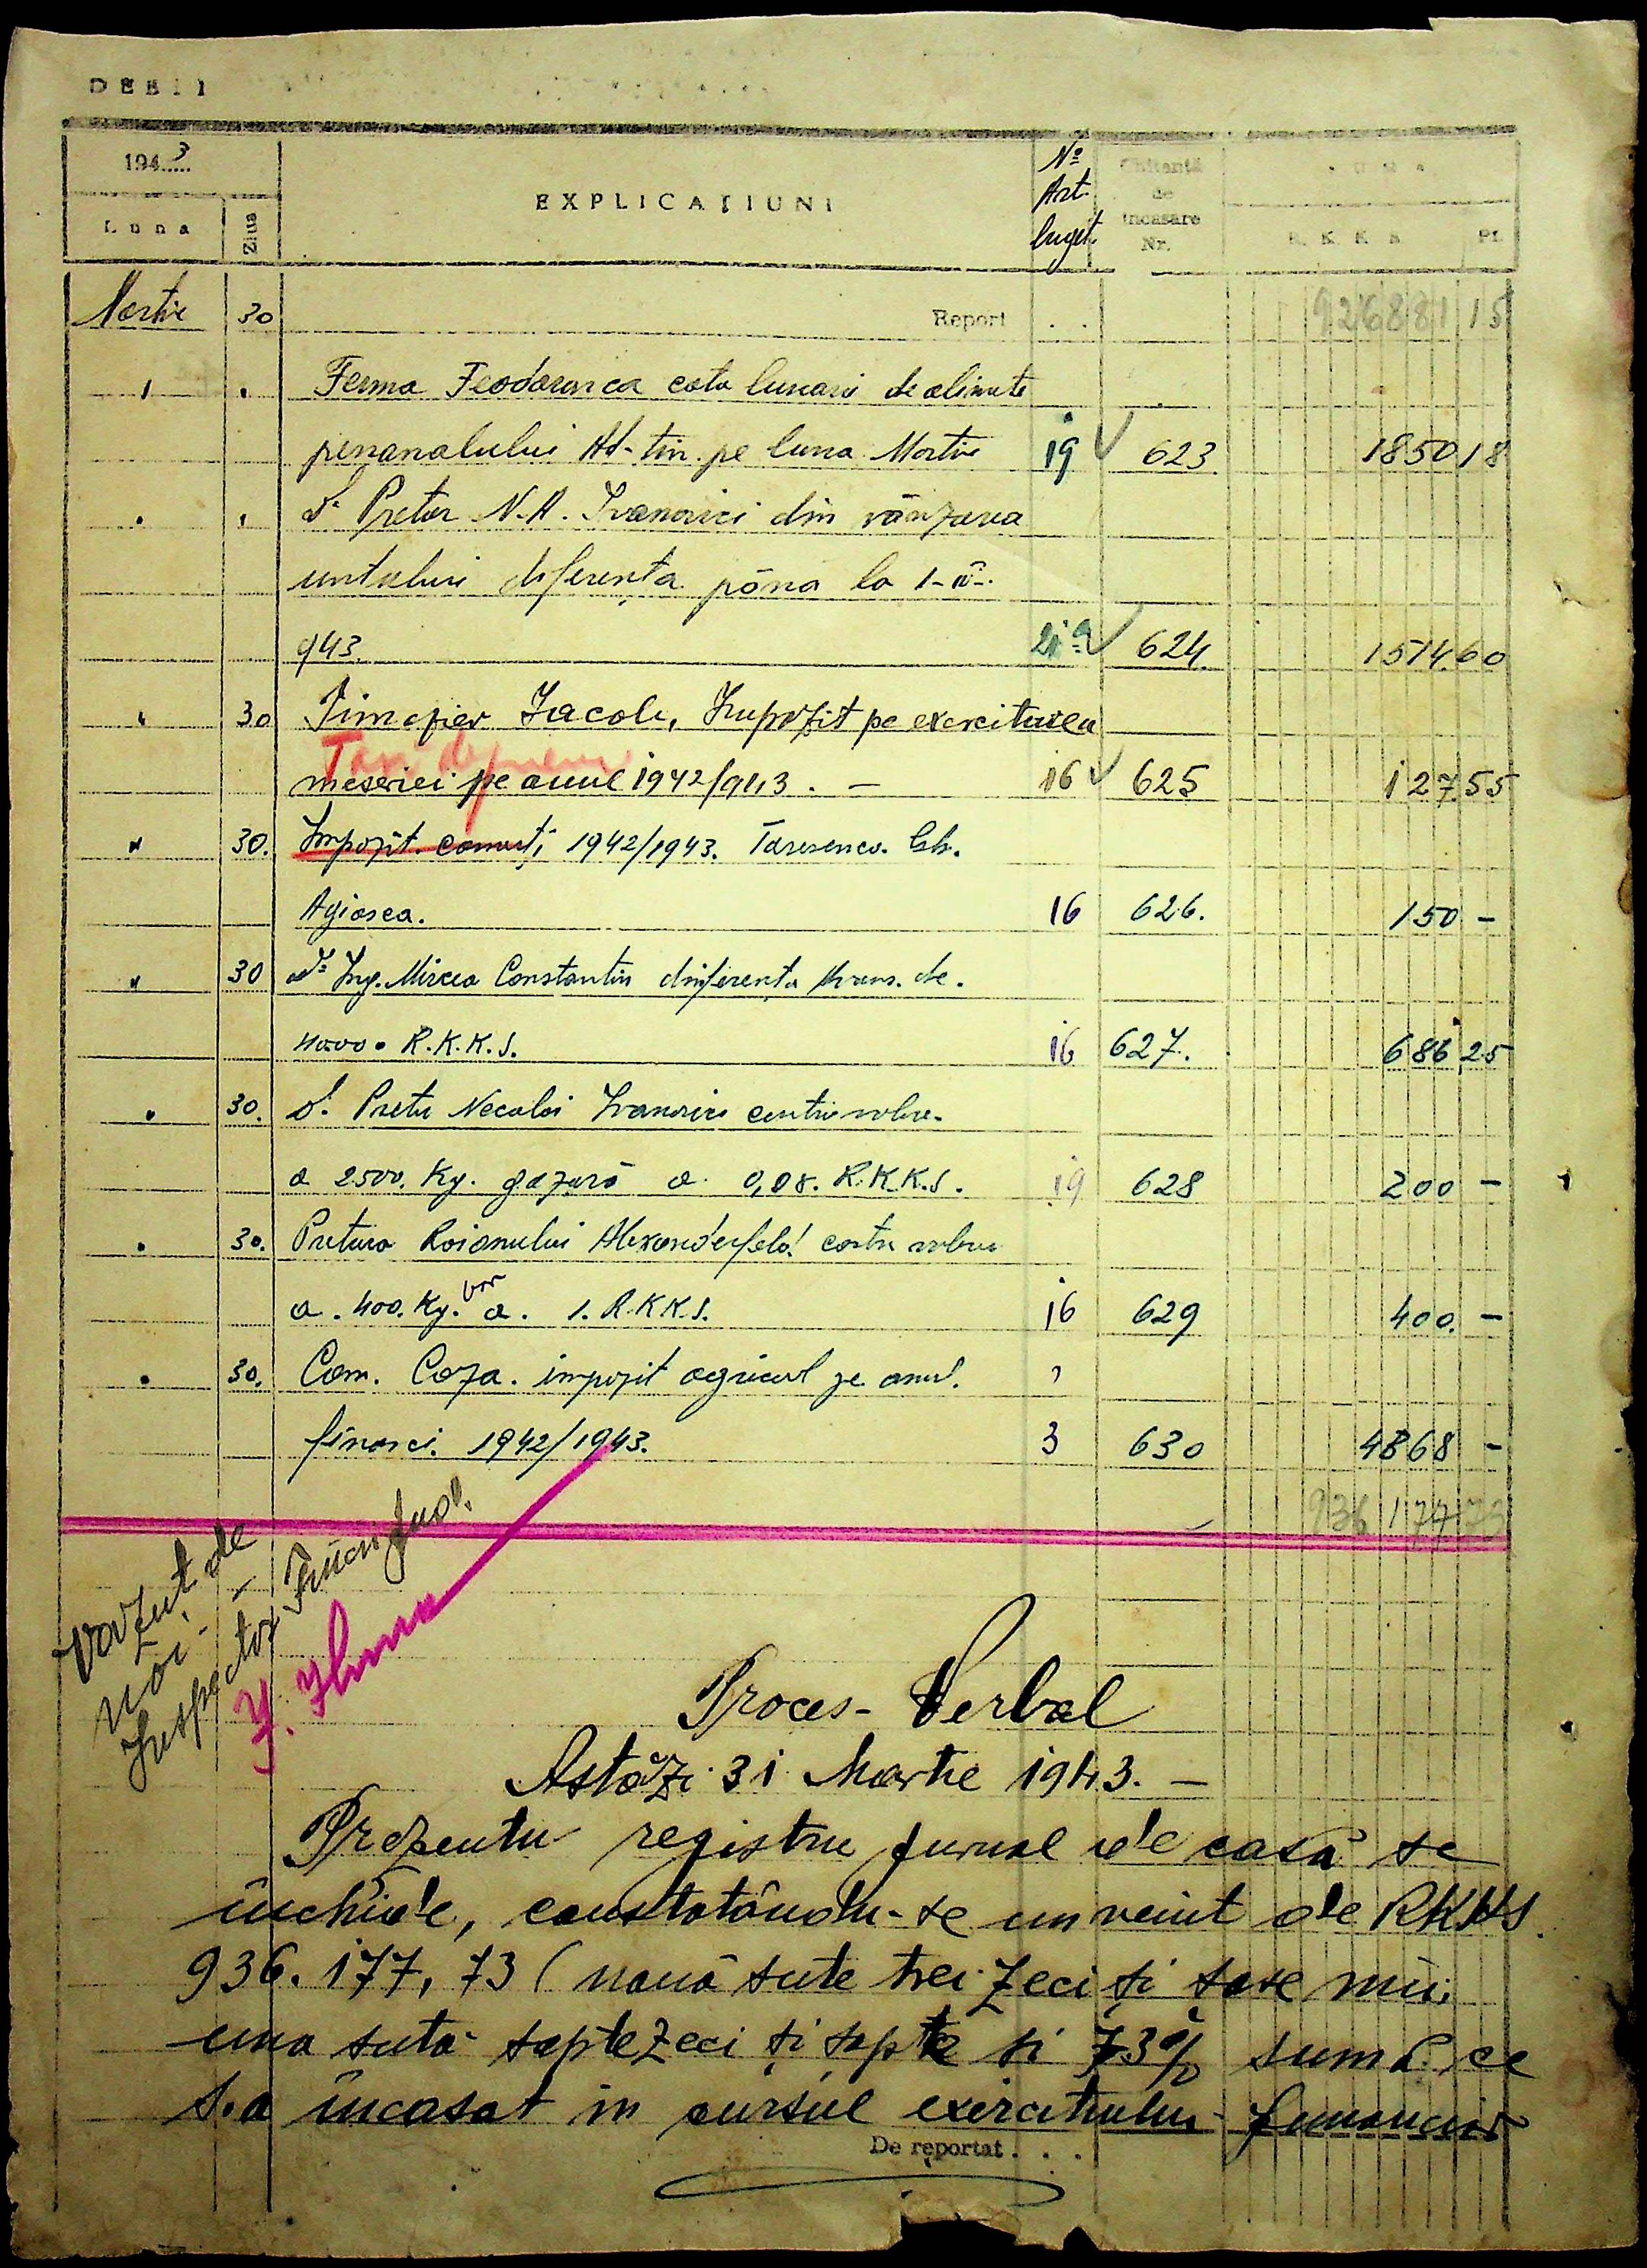 DEBIT
1943
Luna
Ziua
EXPLICAȚIUNI
No Art. buget.
Chitanță de incasare Nr.
SUMA
R. K. K. S. Pf.
Martie 30 Report . . 926881 15
Ferma Feodorovca cota lunară de alimente
personalului Ad-tiv. pe luna Martie 19 623. 1850 18
Dl Pretor N. A. Ivanovici din vânzarea
untului diferența până la 1-IV-
943. 21 a 624. 1514.60
30 Timofiev Iacob, Impozit pe exercitarea
meseriei pe anul 1942/943. — 16 625 127.55
30. Impozit 1942/1943.
16 626. 150 -
30 Dl Ing. Mircea Constantin diferența trans. de.
4000 R.K.K.S. 16 627. 686,25
30. D. Pretor Necolai Ivanovici
a 2500. Kg. a 0,08. R.K.K.S. 19 628 200 -
30. Pretura Raionului Alexanderfeld
a. 400. Kg. var a. 1. R.K.K.S. 16 629 400. -
30. Com. Coza. impozit agricol pe anul.
financi. 1942/1943. 3 630 4368 -
936 177 73
Văzut de
noi -
Inspector Financiar
Proces-Verbal
Astăzi 31 Martie 1943. —
Prezentu registru jurnal de casă se
închide, constatându-se un venit de RKKS.
936.177,73 (nouă sute trei zeci și șase mii
una sută șaptezeci și șapte și 73% sumă ce
s.a încasat în cursul exercitiului financiar
De reportat . . .